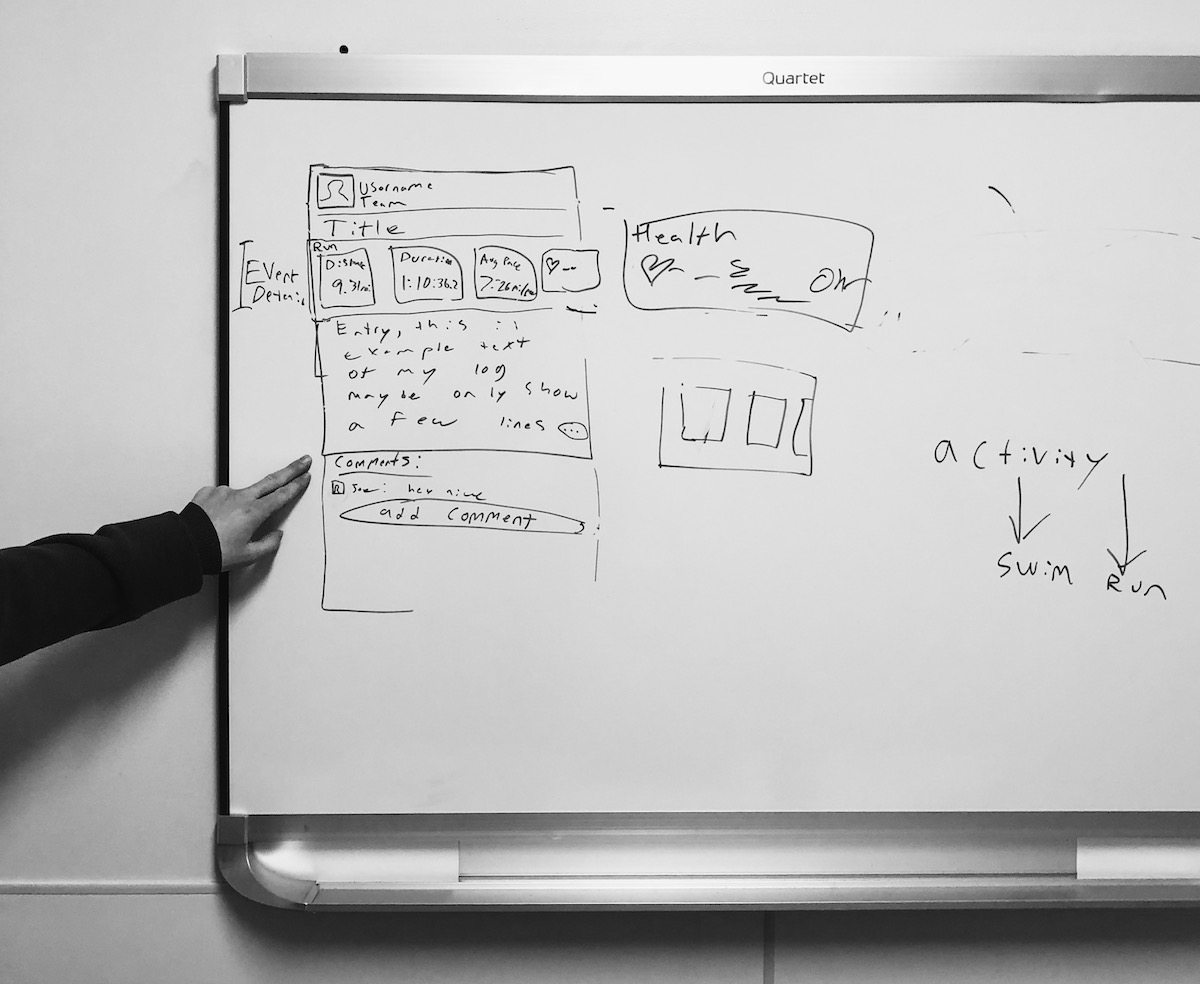 Quartet
Username
Team
Title
Run
Distance
9.31mi
Duration
1:10:36.2
Avg Pace
7:26
Event
Details
Entry, this is
example text
of my log
maybe only show
a few lines ...
Comments:
hey nice
add comment
Health
activity
Swim
Run